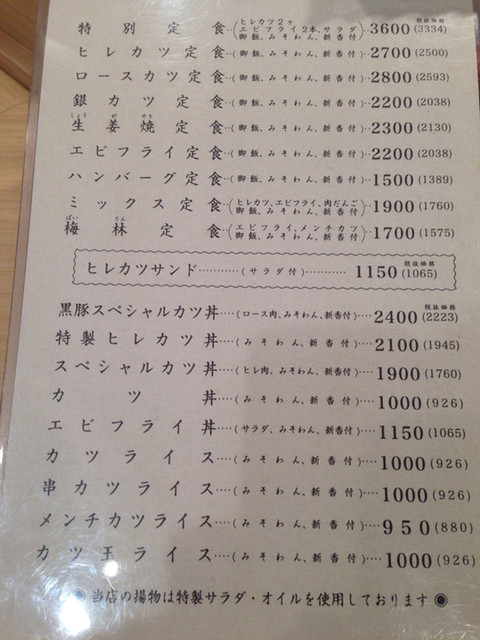 税抜価格
特別定食‥(ヒレカツ2ヶ エビフライ2本、サラダ 御飯、みそわん、新香付)‥3600(3334)
ヒレカツ定食‥(御飯、みそわん、新香付)‥2700(2500)
ロースカツ定食‥(御飯、みそわん、新香付)‥2800(2593)
銀カツ定食‥(御飯、みそわん、新香付)‥2200(2038)
しょう が やき
生姜焼定食‥(御飯、みそわん、新香付)‥2300(2130)
エビフライ定食‥(御飯、みそわん、新香付)‥2200(2038)
ハンバーグ定食‥(御飯、みそわん、新香付)‥1500(1389)
ミックス定食‥(ヒレカツ、エビフライ、肉だんご 御飯、みそわん、新香付)‥1900(1760)
ばい りん
梅林定食‥(エビフライ、メンチカツ 御飯、みそわん、新香付)‥1700(1575)
税抜価格
ヒレカツサンド…………(サラダ付)…………1150(1065)
税抜価格
黒豚スペシャルカツ丼‥‥(ロース肉、みそわん、新香付)‥‥2400(2223)
特製ヒレカツ丼‥‥(みそわん、新香付)‥‥2100(1945)
スペシャルカツ丼‥‥(ヒレ肉、みそわん、新香付)‥‥1900(1760)
カツ丼‥‥(みそわん、新香付)‥‥1000(926)
エビフライ丼‥‥(サラダ、みそわん、新香付)‥‥1150(1065)
カツライス‥‥(みそわん、新香付)‥‥1000(926)
串カツライス‥‥(みそわん、新香付)‥‥1000(926)
メンチカツライス‥‥(みそわん、新香付)‥‥950(880)
カツ玉ライス‥‥(みそわん、新香付)‥‥1000(926)
◉当店の揚物は特製サラダ・オイルを使用しております◉